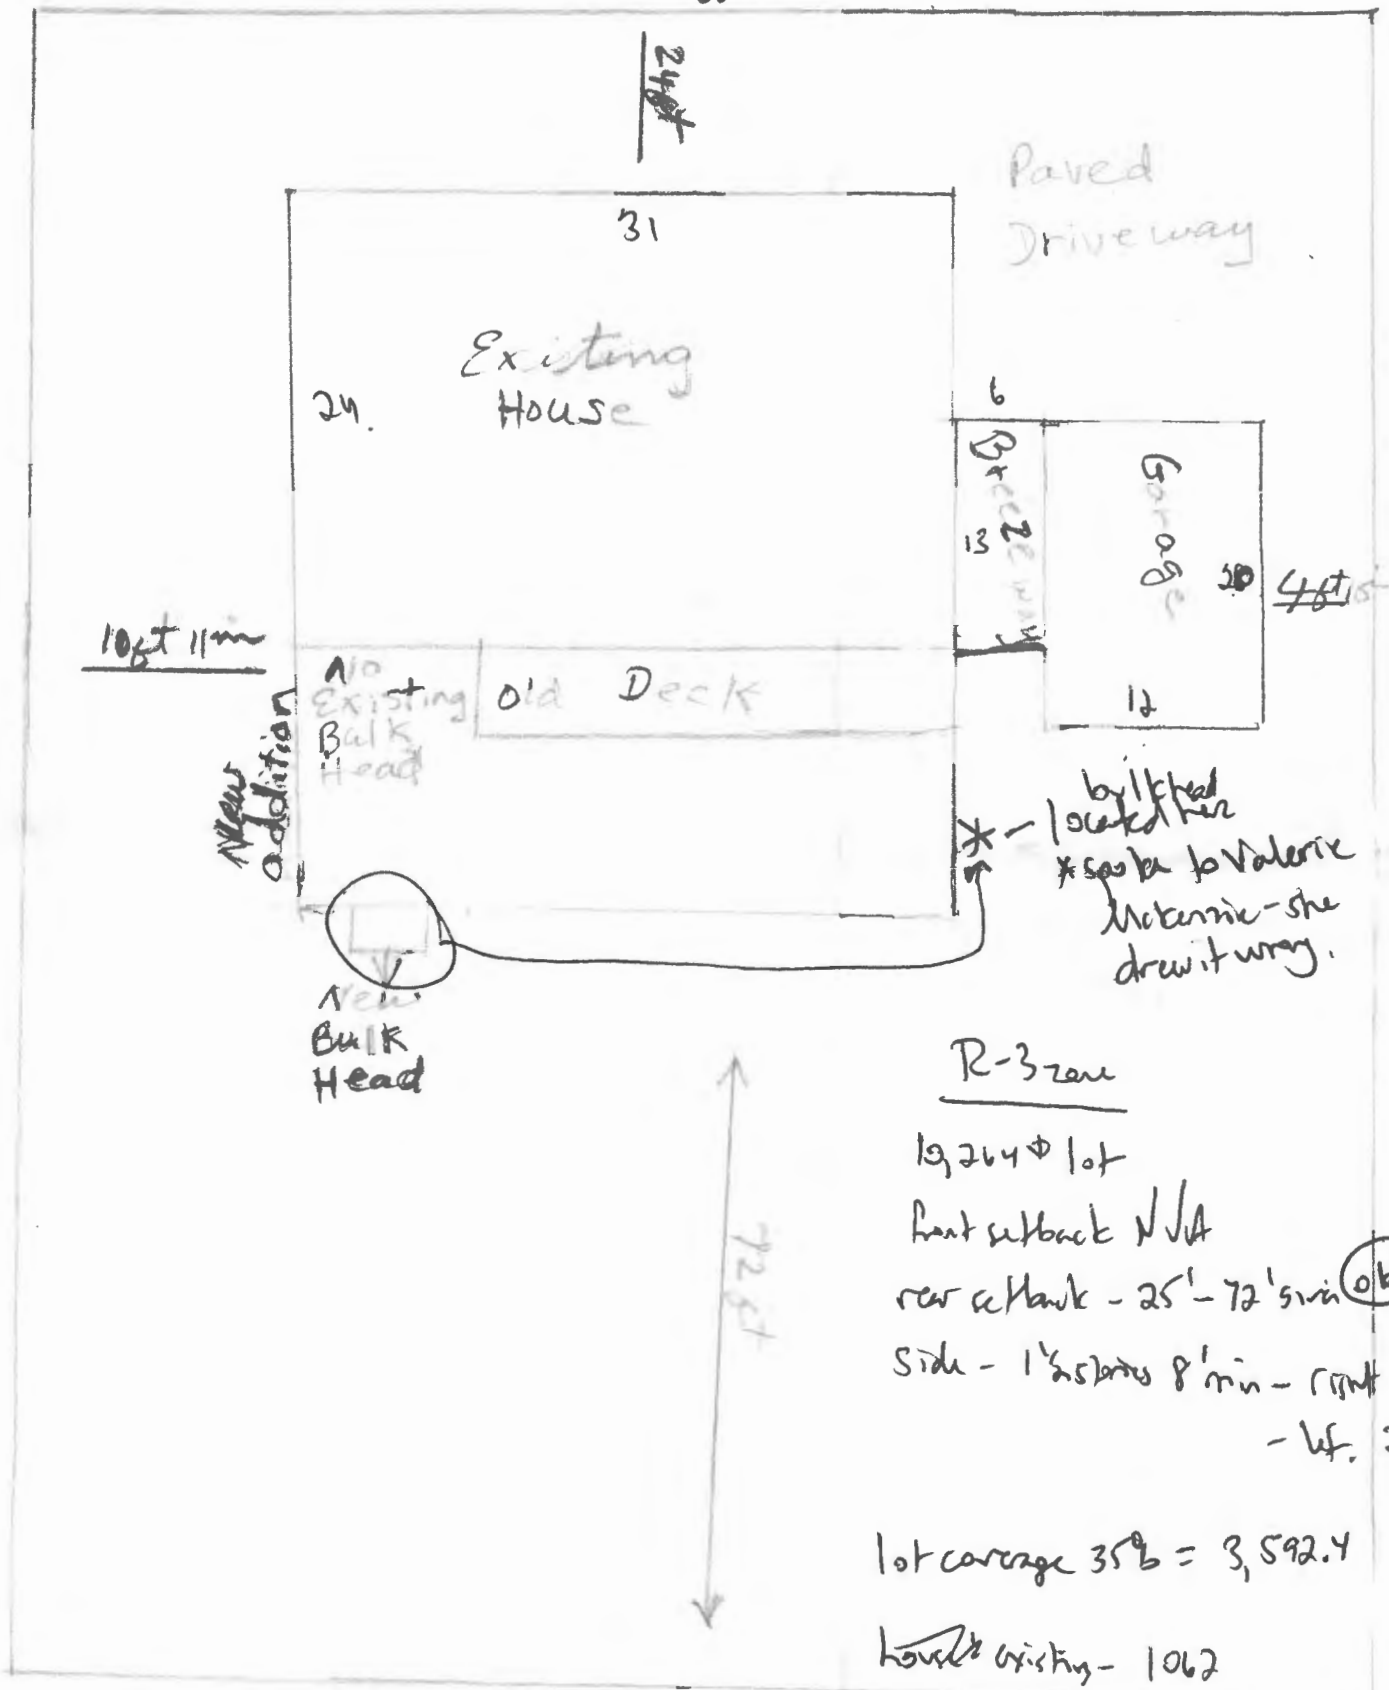 24ft
Paved
Driveway
31
Existing
House
24.
6
Breezeway
13
Garage
20
4ft
12
10ft 11in
No
Existing
Bulk
Head
Old Deck
New
addition
bulkhead
located here
* spoke to Valerie
McKenzie - she
drew it wrong.
New
Bulk
Head
R-3 zone
10,264 lot
front setback N/A
rear setback - 25' - 72' 5in ok
side - 1 1/2 stories 8' min - right
- left.
72ft
lot coverage 35% = 3,592.4
existing - 1062